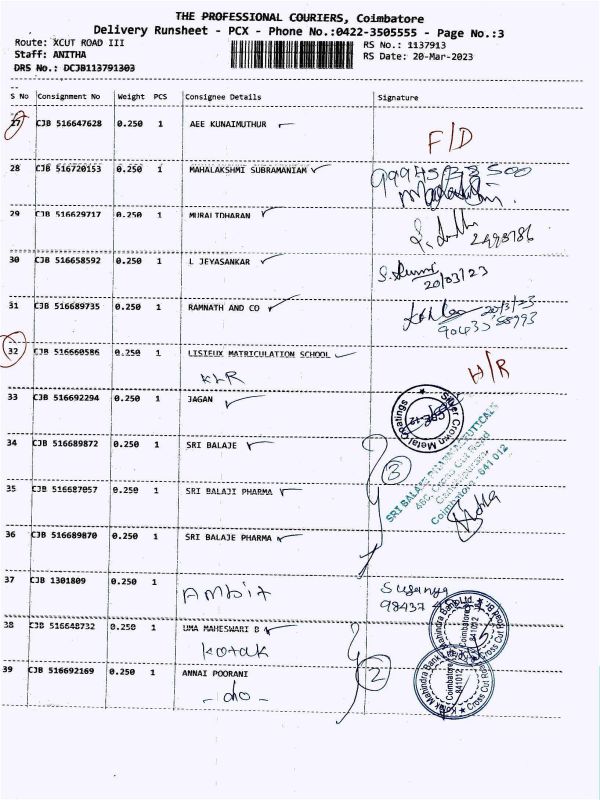 THE PROFESSIONAL COURIERS, Coimbatore
Delivery Runsheet - PCX - Phone No.:0422-3505555 - Page No.:3
Route: XCUT ROAD III RS No.: 1137913
Staff: ANITHA RS Date: 20-Mar-2023
DRS No.: DCJB113791303
S No Consignment No Weight PCS Consignee Details Signature
27 CJB 516647628 0.250 1 AEE KUNAIMUTHUR F/D
28 CJB 516720153 0.250 1 MAHALAKSHMI SUBRAMANIAM
29 CJB 516629717 0.250 1 MURALIDHARAN 2493786
30 CJB 516658592 0.250 1 L JEYASANKAR
20/03/23
31 CJB 516689735 0.250 1 RAMNATH AND CO 20/3/23
32 CJB 516660586 0.250 1 LISIEUX MATRICULATION SCHOOL H/R
KLR
33 CJB 516692294 0.250 1 JAGAN
Silver Crown Metal Coatings
34 CJB 516689872 0.250 1 SRI BALAJE 3
SRI BALAJE PHARMACEUTICALS
Coimbatore - 641 012
35 CJB 516687057 0.250 1 SRI BALAJI PHARMA
36 CJB 516689870 0.250 1 SRI BALAJE PHARMA
37 CJB 1301809 0.250 1
Ambit
98437
38 CJB 516648732 0.250 1 UMA MAHESWARI B
Kotak 2
Kotak Mahindra Bank Ltd. Cross Cut Road Br.
Coimbatore
641012
39 CJB 516692169 0.250 1 ANNAI POORANI
- do -
Kotak Mahindra Bank Cross Cut Road
Coimbatore
641012